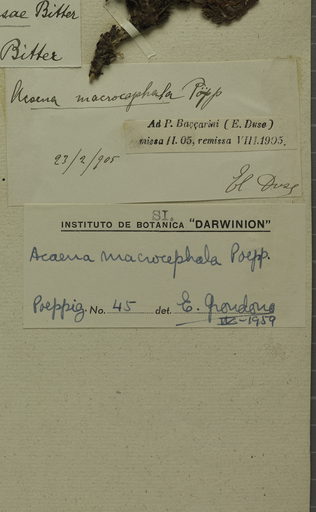 sae Bitter
Bitter
Acaena macrocephala Pöpp
Ad P. Baccarini (E. Duse)
missa II. 05, remissa VIII.1905.
23/2/905
El Duse
SI.
INSTITUTO DE BOTÁNICA "DARWINION"
Acaena macrocephala Poepp.
Poeppig. No. 45 det. E. Grondona
IX-1959